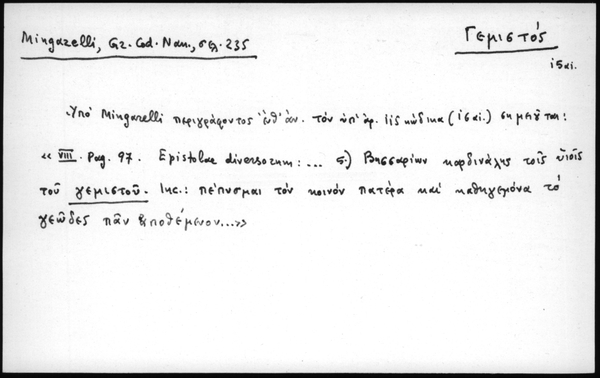 Mingarelli, Gr. Cod. Nan., σελ. 235
Γεμιστός
15 αἰ.
Ὑπὸ Mingarelli περιγράφοντος ἔνθ' ἀν. τὸν ὑπ' ἀρ. κώδικα (15 αἰ.) σημειοῦται:
« VIII. Pag. 97. Epistolae diversorum: ... 5.) Βησσαρίων καρδινάλις τοῖς υἱοῖς
τοῦ γεμιστοῦ. Inc.: πέπυσμαι τὸν κοινὸν πατέρα καὶ καθηγεμόνα τὸ
γεῶδες πᾶν ἀποθέμενον...»